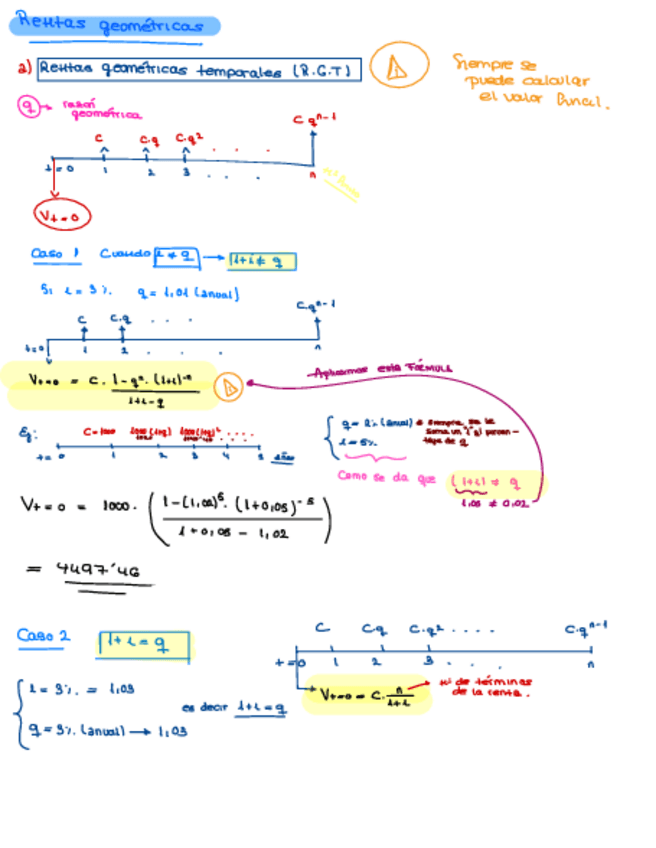 Rentas geométricas
a) Rentas geométricas temporales (R.G.T)
Siempre se
puede calcular
el valor final.
q → razón
geométrica
C C·q C·q² . . . C q^n-1
t=0 1 2 3 . . . . n
Vt=0
Caso 1 Cuando i ≠ q → 1+i ≠ q
Si i = 3%. q = 1,01 (anual)
C C·q . . . C·q^n-1
t=0 1 2 . . . n
Vt=0 = C · 1-q^n · (1+i)^-n / 1+i-q
Aplicamos esta FÓRMULA
Ej: C=1000
t= 0 1 2 3 4 5 años
q = 2% (anual)
i = 5%
Como se da que (1+i) ≠ q
1,05 ≠ 0,02
Vt=0 = 1000 · (1-(1,02)^5 · (1+0,05)^-5 / 1+0,05 - 1,02)
= 4497'46
Caso 2 1+i = q
C Cq C·q² . . . . C·q^n-1
t=0 1 2 3 . . . n
Vt=0 = C · n / 1+i → nº de términos
de la renta.
i = 3%. = 1,03
es decir 1+i=q
q = 3%. (anual) → 1,03